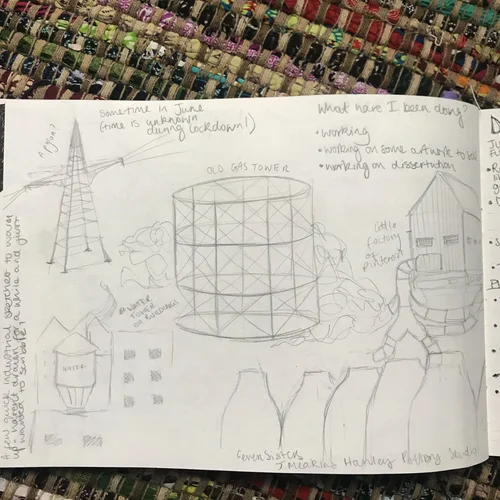 Sometime in June
(time is unknown
during lockdown!)
What have I been doing?
• working
• working on some artwork to sell
• working on dissertation
OLD GAS TOWER
little
factory
of
pinterest
WATER
TOWER
ON BUILDINGS
WATER
A few quick industrial sketches to warm
up haven't drawn for a while and just
wanted to scribble!
Seven Sisters
J. Meakins Hanley Pottery Studio